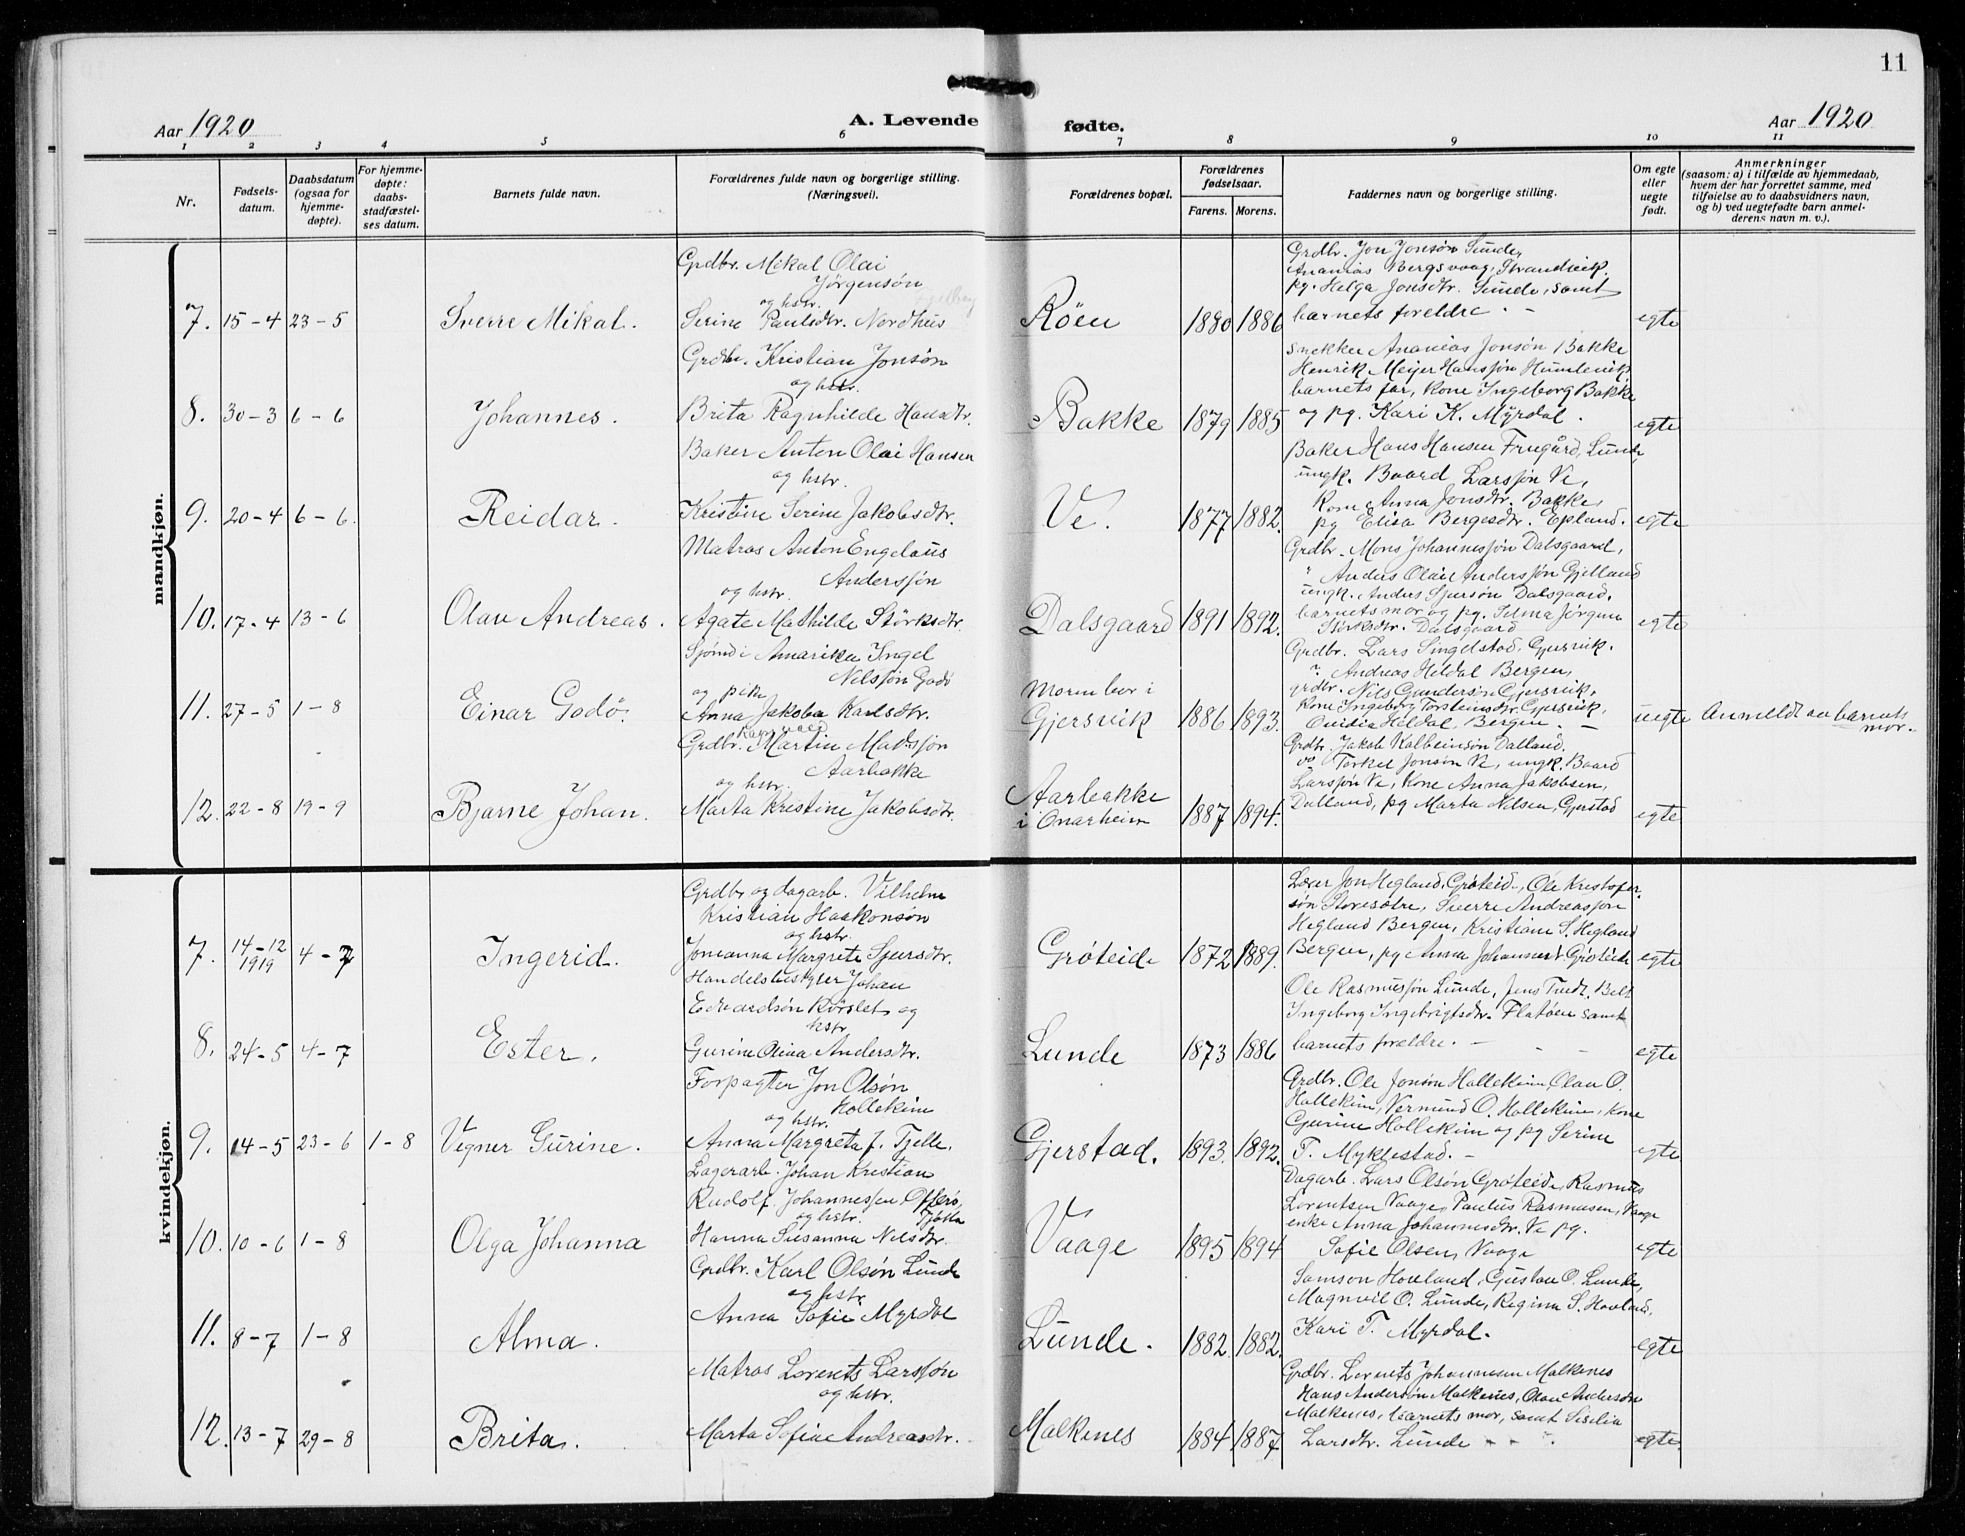 11
Aar 1920
A. Levende fødte.
Aar 1920
1 2 3 4 5 6 7 8 9 10 11
Nr.
Fødsels-
datum.
Daabsdatum
(ogsaa for
hjemme-
døpte).
For hjemme-
døpte:
daabs-
stadfæstel-
ses datum.
Barnets fulde navn.
Forældrenes fulde navn og borgerlige stilling.
(Næringsvei).
Forældrenes bopæl.
Forældrenes
fødselsaar.
Farens. Morens.
Faddernes navn og borgerlige stilling.
Om egte
eller
uegte
født.
Anmerkninger
(saasom: a) i tilfælde av hjemmedaab,
hvem der har forrettet samme, med
tilføielse av to daabsvidners navn,
og b) ved uegtefødte barn anmel-
derens navn m. v.).
mandkjøn.
7. 15-4 23-5 Sverre Mikal.
Grdbr. Mikal Olai
Jørgensøn
og hstr.
Serine Paulsdtr. Nordhus
Röen 1880 1886
Grdbr. Jon Jonsøn Sunde,
Ananias Bergsvaag, Strandvik.
pg. Helga Jonsdtr. Sunde, samt
barnets foreldre. -
egte
8. 30-3 6-6 Johannes.
Grdbr. Kristian Jonsøn
og hstr.
Brita Ragnhilde Hansdtr.
Bakke 1879 1885
Snekker Ananias Jonsøn Bakke
Henrik Meijer Hansson Humlevik
barnets far, kone Ingeborg Bakke
og pg. Kari K. Myrdal.
egte
9. 20-4 6-6. Reidar.
Baker Anton Olai Hansen
og hstr.
Kristine Serine Jakobsdtr.
Ve. 1877 1882.
Baker Hans Hansen Frugård, Lunde,
ungk. Baard Larssøn Ve,
Kone Anna Jonsdtr. Bakke,
pg Elisa Bergesdtr. Epland.
egte
10. 17-4 13-6 Olav Andreas.
Matros Anton Engelaus
Anderssøn
og hstr.
Agate Mathilde Størksdtr.
Dalsgaard 1891 1892.
Grdbr. Mons Johannessøn Dalsgaard,
" Anders Olai Anderssøn Gjelland
ungk. Anders Sjursøn Dalsgaard,
barnets mor og pg. Selma Jørgine
Størksdtr. Dalsgaard
egte
11. 27-5 1-8 Einar Godø.
Sjømd i Amerika Ingel
Nilssøn Godø
og pike
Anna Jakoba Karlsdtr.
Moren bor i
Gjersvik 1886 1893.
Grdbr. Lars Singelstad, Gjersvik.
" Andreas Heldal Bergen,
grdbr. Nils Gundersøn Gjersvik,
Kone Ingeborg Torsteinsdtr. Gjersvik,
Ovidia Heldal, Bergen. -
uegte Anmeldt av barnets
mor.
12. 22-8 19-9 Bjarne Johan.
Ragnvald
Grdbr. Martin Madssøn
Aarbakke
og hstr.
Marta Kristine Jakobsdtr.
Aarbakke
i Onarheim 1887 1894.
Grdbr. Jakob Kolbeinsøn Dalland.
Torkel Jonsøn Ve, ungk. Baard
Larssøn Ve, Kone Anna Jakobsen,
Dalland, pg Marta Nelsen, Gjerstad
egte
kvindekjøn.
7. 14-12
1919 4-7 Ingerid.
Grdbr og dagarb. Vilhelm
Kristian Haakonsøn
og hstr.
Johanna Margrete Sjursdtr.
Grøteide 1872 1889.
Lærer Jon Hegland, Grøteid, Ole Kristofer-
søn Storesætre, Sverre Andreassøn
Hegland Bergen, Kristiane S. Hegland
Bergen, pg Anna Johannesdt Grøteide
egte
8. 24-5 4-7 Ester.
Handelsbestyrer Johan
Edvardsøn Rørslet og
hstr
Gurine Oliva Andersdtr.
Lunde 1873 1886
Ole Rasmussøn Lunde, Jens Tvedt. Belt
Ingeborg Ingebrigtsdtr. Flatøen samt
barnets foreldre. -
egte
9. 14-5 23-6 1-8 Vegner Gurine.
Forpagter Jon Olsøn
Hollekim
og hstr.
Anna Margreta f. Tjelle.
Gjerstad. 1893. 1892.
Grdbr. Ole Jonsøn Hollekim, Olav O.
Hollekim, Vermund O. Hollekim, kone
Gurine Hollekim og pg Serine
T. Myklestad. -
egte
10. 10-6 1-8 Olga Johanna
Lagerarb. Johan Kristian
Rudolf Johannessen Offerø,
Tjøtta
og hstr.
Hanna Susanna Nilsdtr.
Vaage 1895 1894
Dagarb. Lars Olsøn Grøteide, Rasmus
Lorentsen Vaage, Paulus Rasmusen, Vaage
enke Anna Johannesdtr. Ve pg.
Sofie Olsen, Vaage
egte
11. 8-7 1-8 Alma.
Grdbr. Karl Olsøn Lunde
og hstr
Anna Sofie Myrdal
Lunde. 1882. 1882.
Samson Hovland, Gustav O. Lunde,
Magnvil O. Lunde, Regina S. Hovland,
Kari T. Myrdal.
egte
12. 13-7 29-8 Brita.
Matros Lorents Larssøn
og hstr.
Marta Sofie Andreasdtr.
Malkenes 1884 1887
Grdbr. Lorents Johannesen Malkenes
Hans Andersøn Malkenes, Olav Andersøn
Malkenes, barnets mor, samt Sesilia
Larsdtr. Lunde - - -
egte.